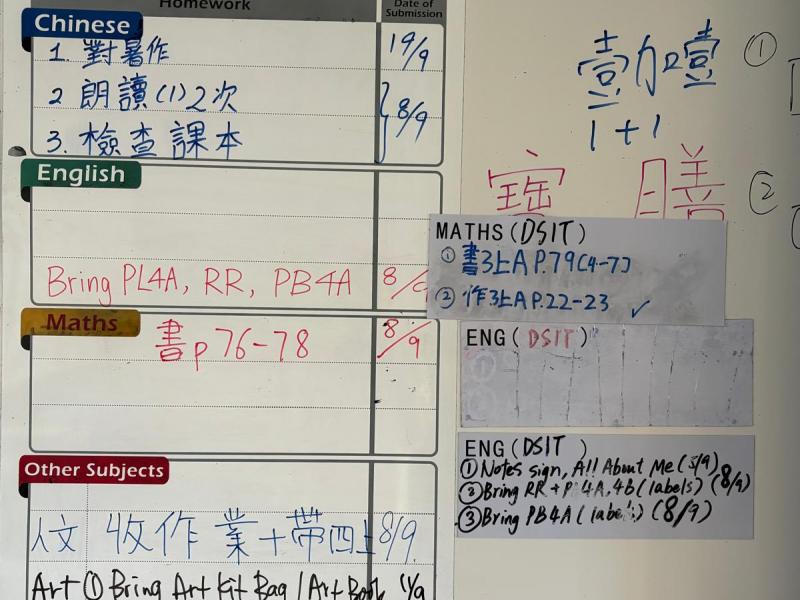 Homework
Date of Submission
Chinese
1. 對暑作 19/9
2 朗讀(1)2次
3. 檢查課本
8/9
English
Bring PL4A, RR, PB4A 8/9
Maths
書p 76-78 8/9
Other Subjects
人文 收作業+帶四上 8/9
Art ① Bring Art Kit Bag / Art Book 11/9
壹加壹
1+1
①
寶 膳
②
MATHS (DSIT)
① 書3上A P.79(4-7)
② 作3上A P.22-23 ✓
ENG (DSIT)
ENG (DSIT)
① Notes sign, All About Me (5/9)
② Bring RR + PL4A, 4b (labels) (8/9)
③ Bring PB4A (labels) (8/9)